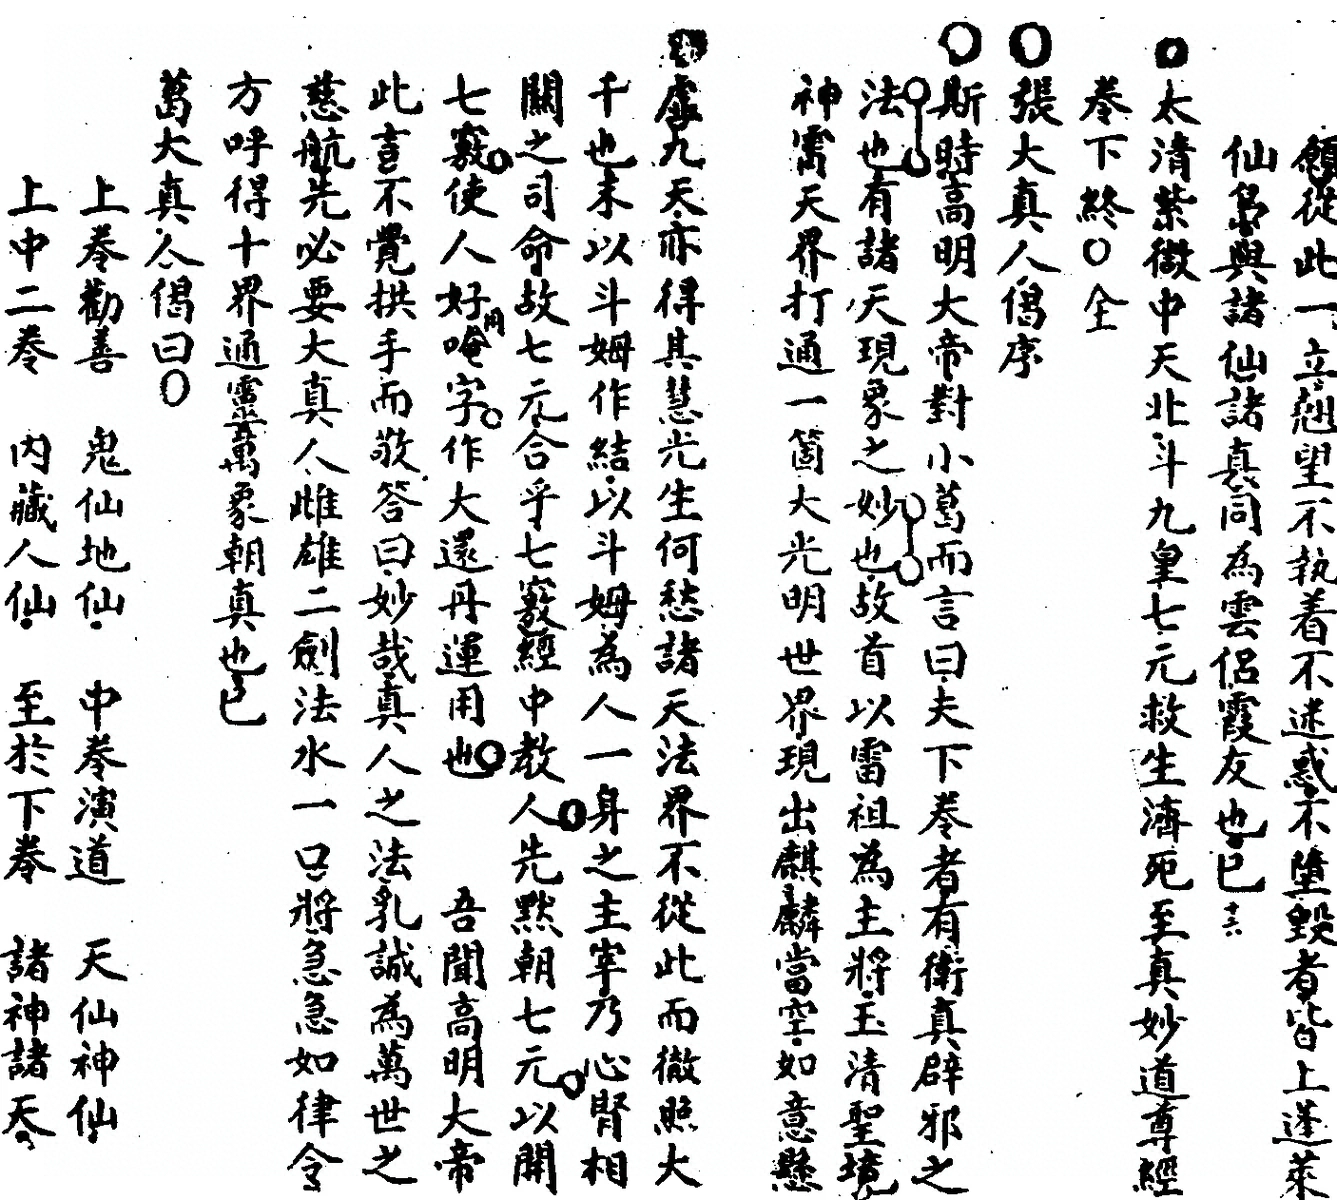 願從此一立翹望不執着不迷惑不墮毀者皆上蓬萊
仙島與諸仙諸真同為雲侶霞友也已十六
太清紫微中天北斗九皇七元救生濟死至真妙道尊經
卷下終〇全
張大真人偈序
斯時高明大帝對小葛而言曰夫下卷者有衛真辟邪之
法也有諸天現象之妙也故首以雷祖為主將玉清聖境
神霄天界打通一箇大光明世界現出麒麟當空如意懸
虛九天亦得其慧光生何愁諸天法界不從此而徹照大
千也末以斗姆作結以斗姆為人一身之主宰乃心腎相
關之司命故七元合乎七竅經中教人先默朝七元以開
七竅使人好用唵字作大還丹運用也 吾聞高明大帝
此言不覺拱手而敬答曰妙哉真人之法乳誠為萬世之
慈航先必要大真人雌雄二劍法水一口將急急如律令
方呼得十界通靈萬象朝真也已
葛大真人偈曰〇
上卷勸善 鬼仙地仙 中卷演道 天仙神仙
上中二卷 內藏人仙 至於下卷 諸神諸天